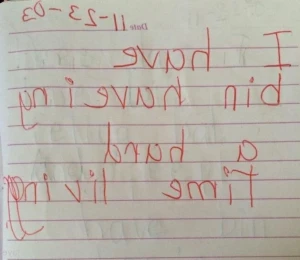 Date 11-23-03
I have
bin haveing
a hard
time living